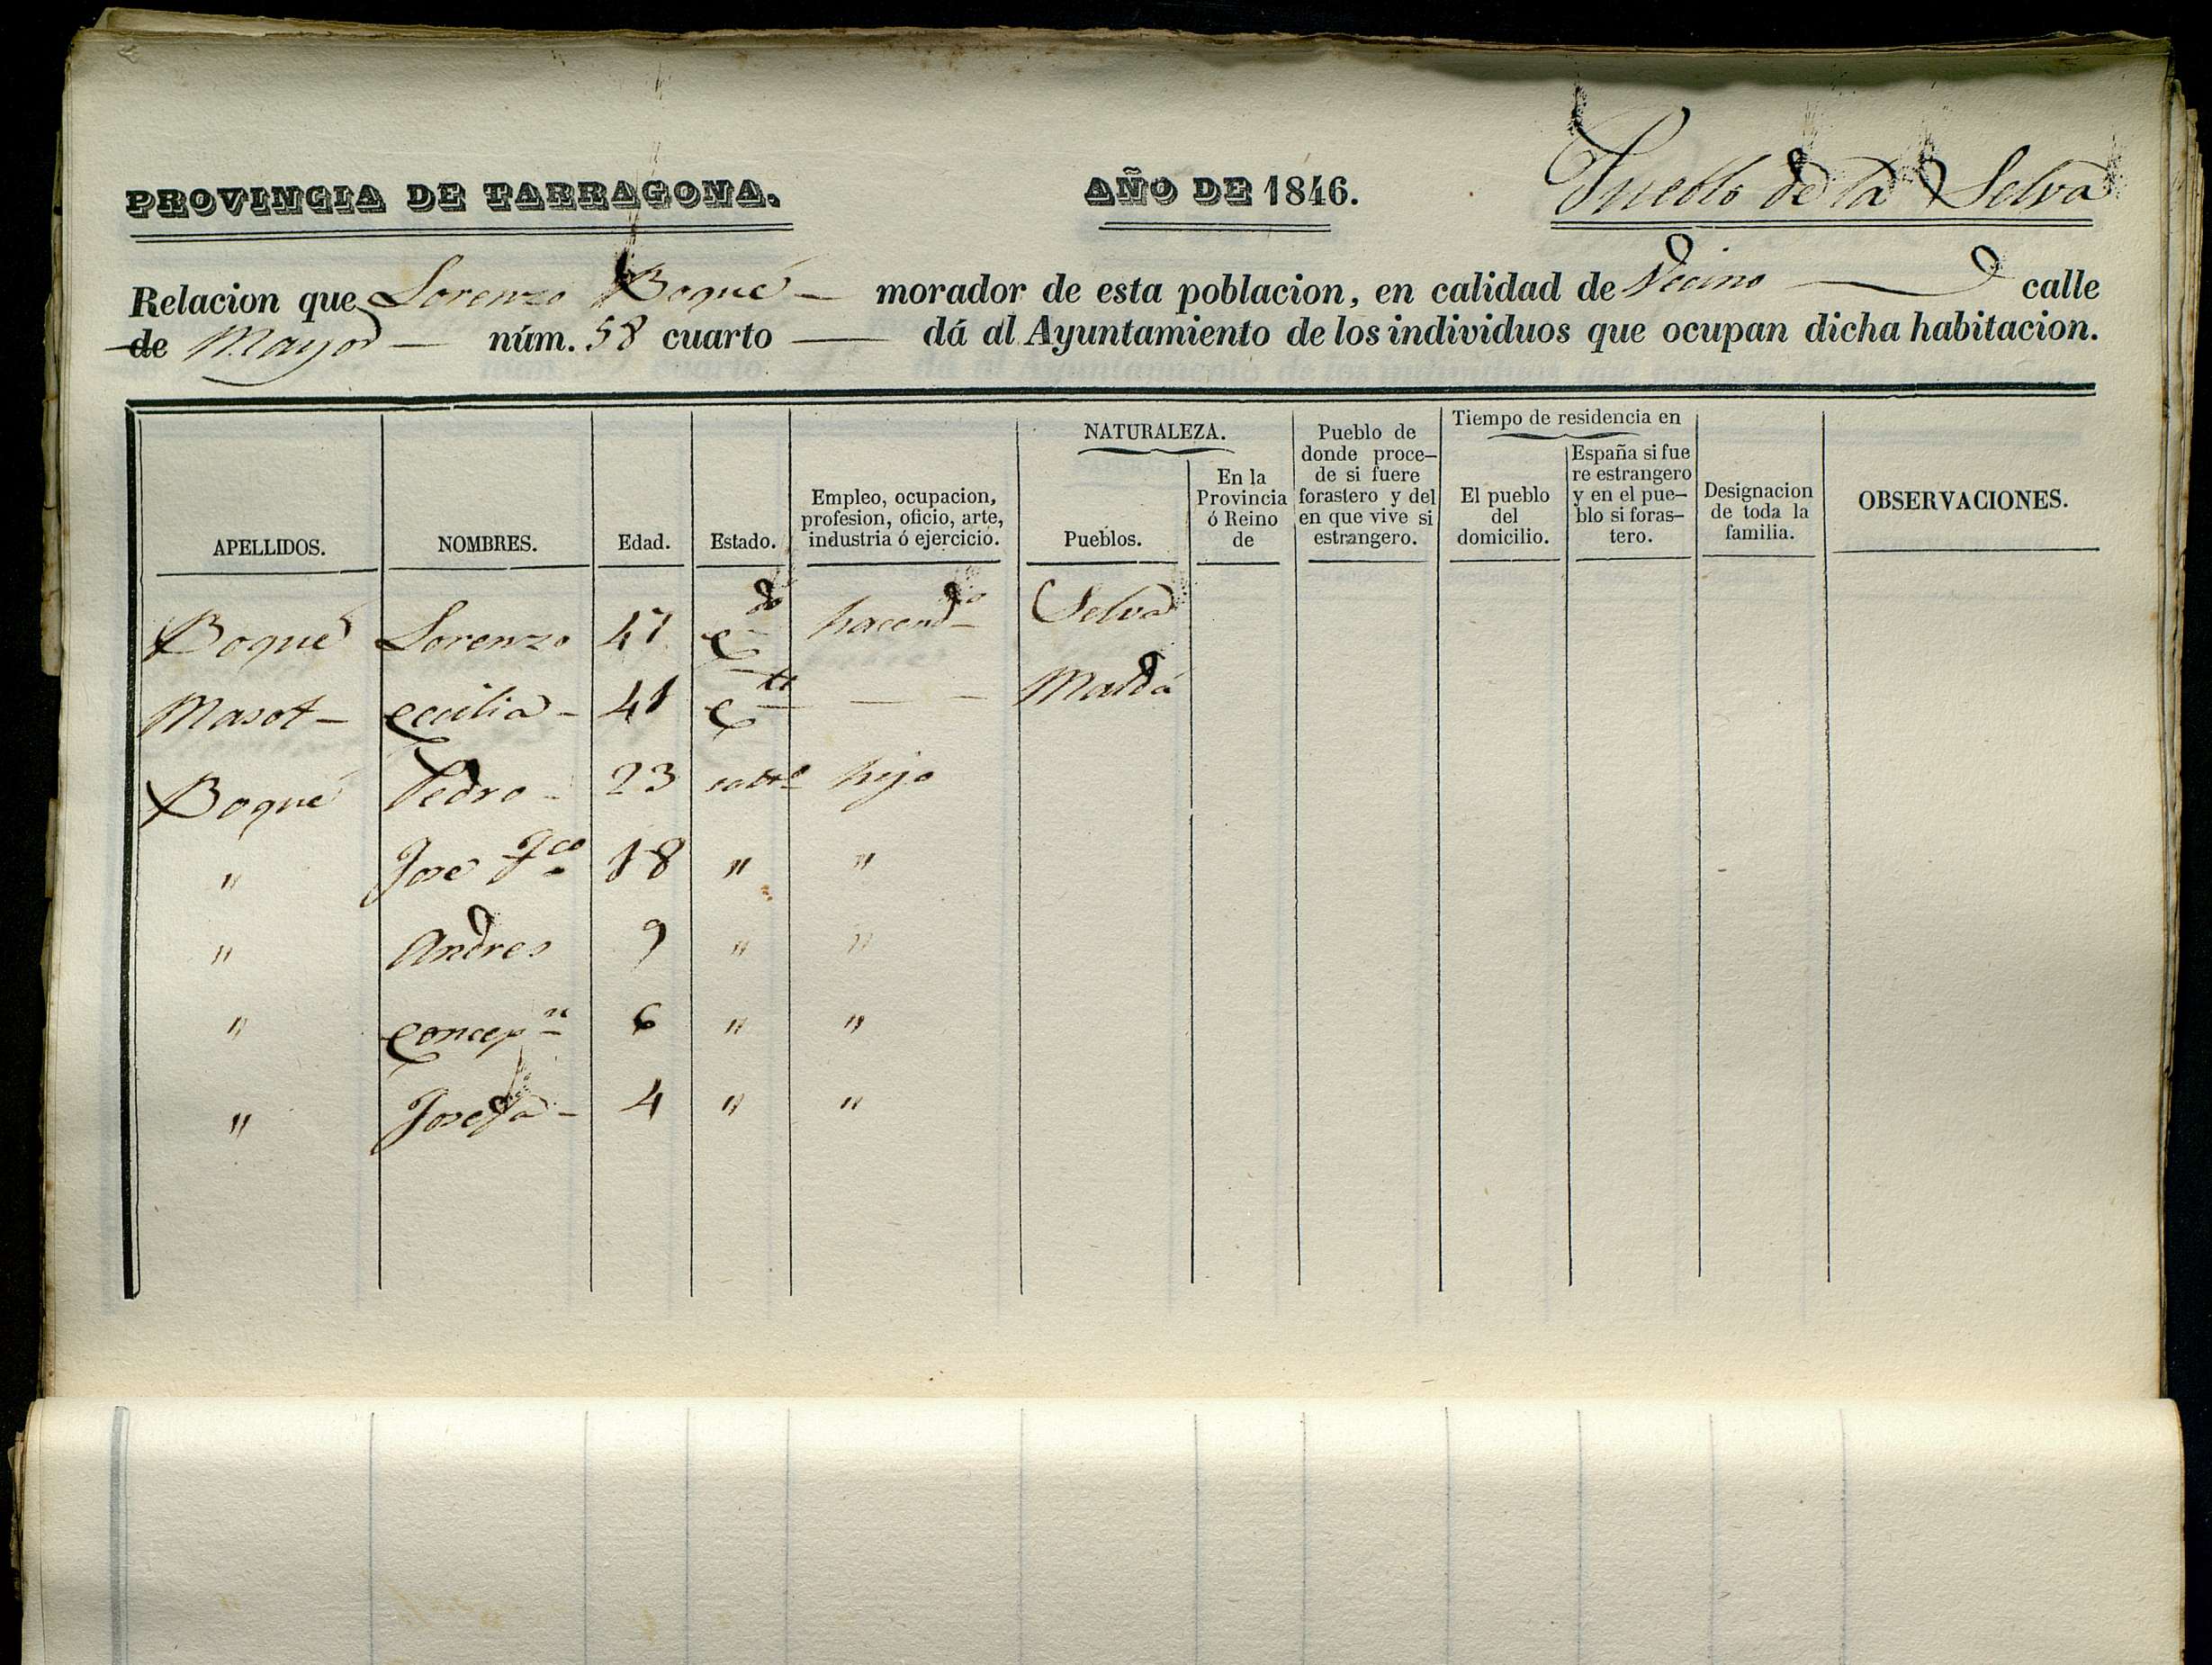 PROVINCIA DE TARRAGONA. AÑO DE 1846. Pueblo de la Selva
Relacion que Lorenzo Boqué — morador de esta poblacion, en calidad de Vecino — calle
de Mayor — núm. 58 cuarto — dá al Ayuntamiento de los individuos que ocupan dicha habitacion.
APELLIDOS.
NOMBRES.
Edad.
Estado.
Empleo, ocupacion,
profesion, oficio, arte,
industria ó ejercicio.
NATURALEZA.
Pueblos.
En la
Provincia
ó Reino
de
Pueblo de
donde proce–
de si fuere
forastero y del
en que vive si
estrangero.
Tiempo de residencia en
El pueblo
del
domicilio.
España si fue
re estrangero
y en el pue–
blo si foras–
tero.
Designacion
de toda la
familia.
OBSERVACIONES.
Boqué Lorenzo 47 Cdo hacendo Selva
Masot — Cecilia — 41 Cda — — Maldá
Boqué Pedro — 23 solto hijo
" Jose Fco 18 " "
" Andres 9 " "
" Concepn 6 " "
" Josefa — 4 " "